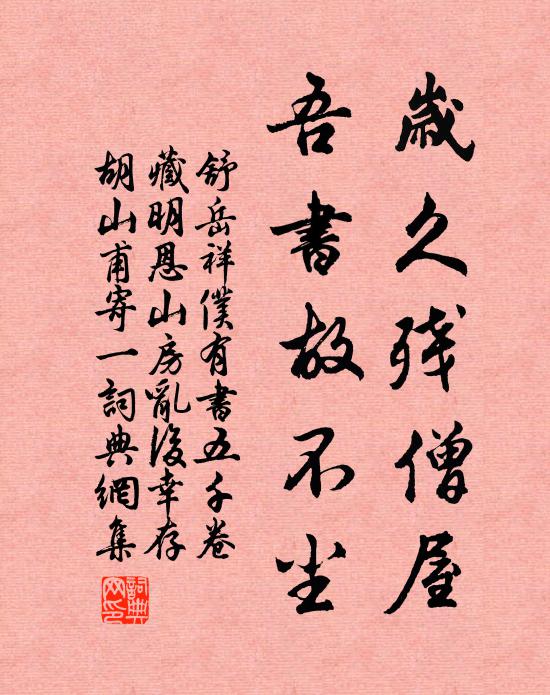 歲久殘僧屋
吾書故不尘
舒岳祥僕有書五千卷
藏明恩山房亂後幸存
胡山甫寄一詞典網集
詞典网印